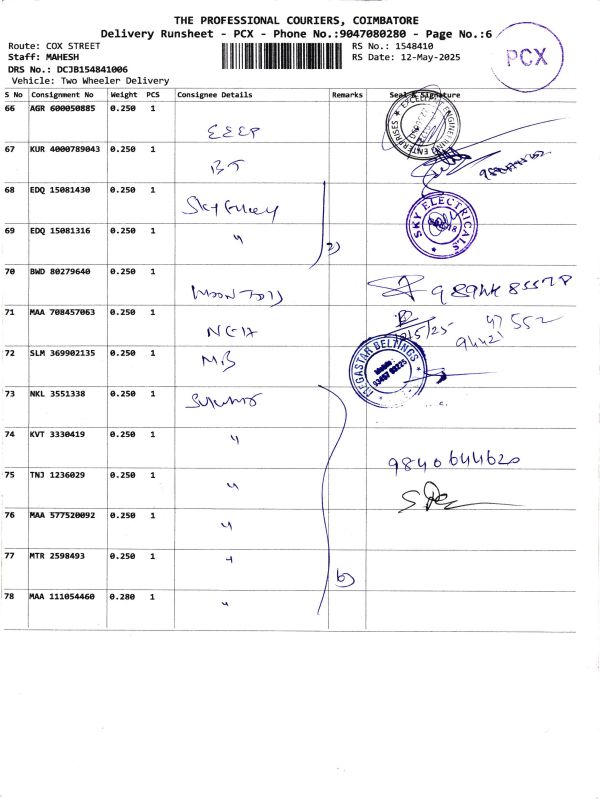 THE PROFESSIONAL COURIERS, COIMBATORE
Delivery Runsheet - PCX - Phone No.:9047080280 - Page No.:6
Route: COX STREET RS No.: 1548410
Staff: MAHESH RS Date: 12-May-2025
DRS No.: DCJB154841006
Vehicle: Two Wheeler Delivery
PCX
S No Consignment No Weight PCS Consignee Details Remarks Seal & Signature
66 AGR 600050885 0.250 1
EEEP
ENTERPRISES
67 KUR 4000789043 0.250 1
BT
68 EDQ 15081430 0.250 1
SKY ELECTRICALS
69 EDQ 15081316 0.250 1
〃 2)
70 BWD 80279640 0.250 1
71 MAA 708457063 0.250 1
72 SLM 369902135 0.250 1
M.B
MEGASTAR BELTINGS
73 NKL 3551338 0.250 1
74 KVT 3330419 0.250 1
〃
9840644620
75 TNJ 1236029 0.250 1
〃
76 MAA 577520092 0.250 1
〃
77 MTR 2598493 0.250 1
〃
78 MAA 111054460 0.280 1
〃